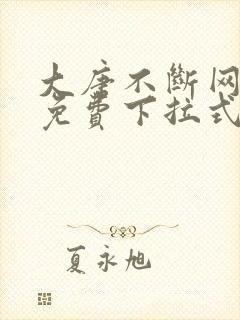 大唐不断网
免費下拉式
夏永旭